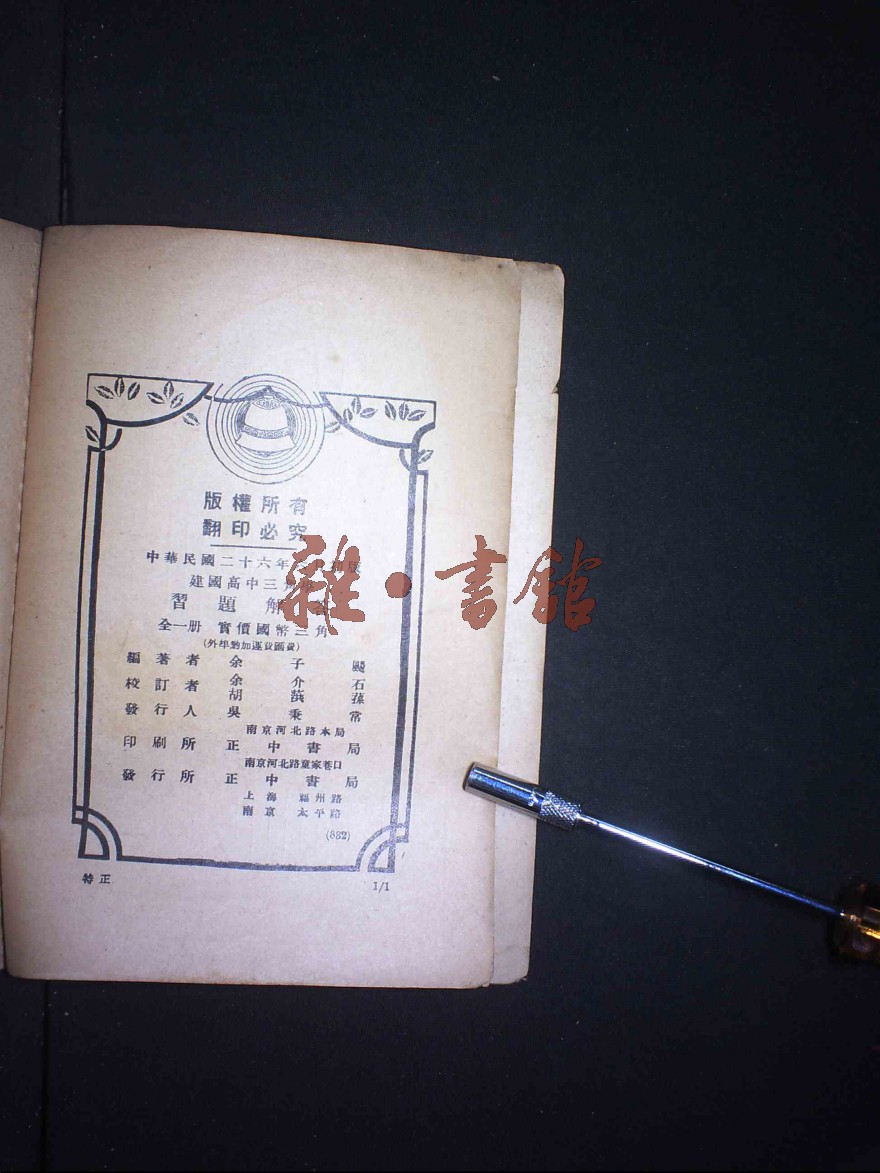 版權所有
翻印必究
中華民國二十六年 月初版
建國高中三角學
習題解答
全一册 實價國幣三角
(外埠酌加運費匯費)
編著者 余子
校訂者 余介石
胡
發行人 吳秉常
南京河北路本局
印刷所 正中書局
南京河北路童家巷口
發行所 正中書局
上海福州路
南京太平路
(882)
特正
1/1
雜·書館